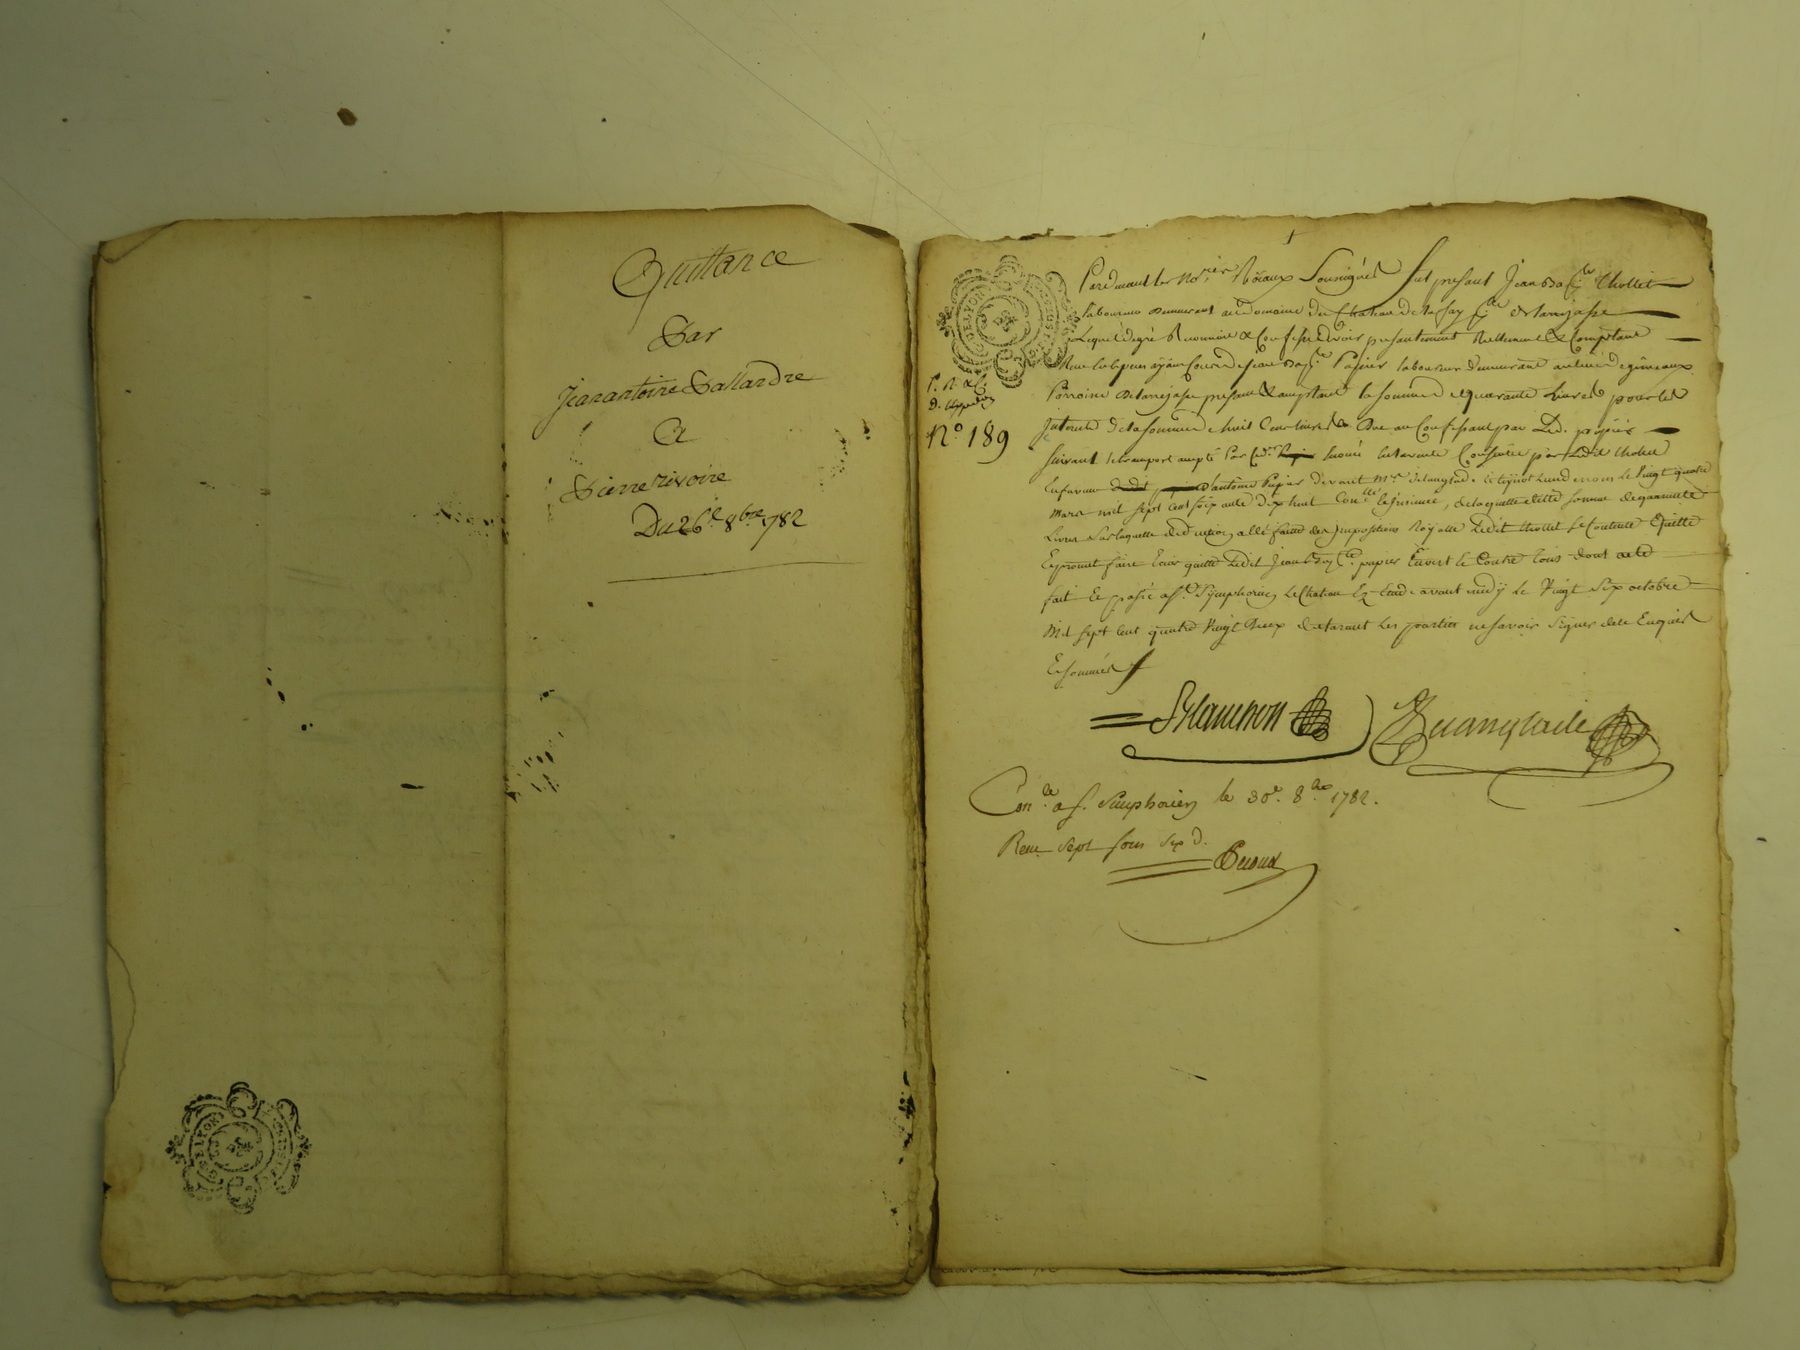 Quittance
Par
Jean antoine Pallandre
A
Pierre rivoire
Du 26e 8bre 1782
G. DE LYON
Pardevant les Nores Royaux Soussignés fut present Jean Bapte Chollet
laboureur demeurant au domaine du Chateau de la fay psse de larajasse
Lequel de gré Reconnoit & Confesse avoir presentement Reellement & Comptant
Reçu
laboureur demeurant
Parroisse de larajasse present & acceptant la somme de quarante Livres pour les
Interests de la somme de huit Cent livres due au Confessant par Led. papier
Suivant le transport accepté par
Consentie par Ledit Chollet
En faveur d'antoine Papier devant Me delanglade Le Vingt quatre
Mars mil sept Cent soixante dix huit Conllé Le, de laquelle ditte somme de quarante
Livres Sur laquelle deduction a été faitte des Impositions Royalles Ledit Chollet Se Contente & quitte
& promet faire tenir quitte Ledit Jean Bapte papier Envers & Contre tous dont acte
fait & passé a St Symphorien Le Chateau Ez Etude avant midy Le Vingt Six octobre
Mil sept Cent quatre Vingt Deux & declarant Les parties ne savoir Signer de ce Enquis
& sommés
N° 189
Blanchon Delanglade
Conlé a St. Simphorien le 30e. 8bre 1782.
Reçu Sept sous Six d.